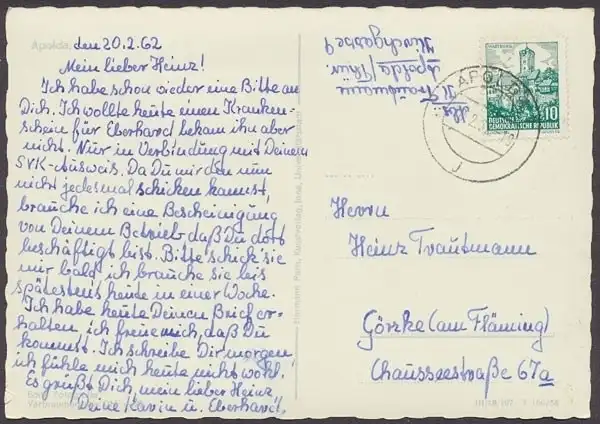 Apolda, den 20.2.62
Mein lieber Heinz!
Ich habe schon wieder eine Bitte an
Dich. Ich wollte heute einen Kranken-
schein für Eberhard bekam ihn aber
nicht. Nur in Verbindung mit Deinem
SVK-Ausweis. Da Du mir den nun
nicht jedesmal schicken kannst,
brauche ich eine Bescheinigung
von Deinem Betrieb, daß Du dort
beschäftigt bist. Bitte schick sie
mir bald, ich brauche sie bis
spätestens heute in einer Woche.
Ich habe heute Deinen Brief er-
halten, ich freue mich, daß Du
kommst. Ich schreibe Dir morgen,
ich fühle mich heute nicht wohl.
Es grüßt Dich, mein lieber Heinz,
Deine Karin u. Eberhard.
K. Trautmann
Apolda/Thür.
Kirchgasse 9
WARTBURG
DEUTSCHE
DEMOKRATISCHE REPUBLIK
10
APOLDA
Herrn
Heinz Trautmann
Görzke (am Fläming)
Chausseestraße 67a